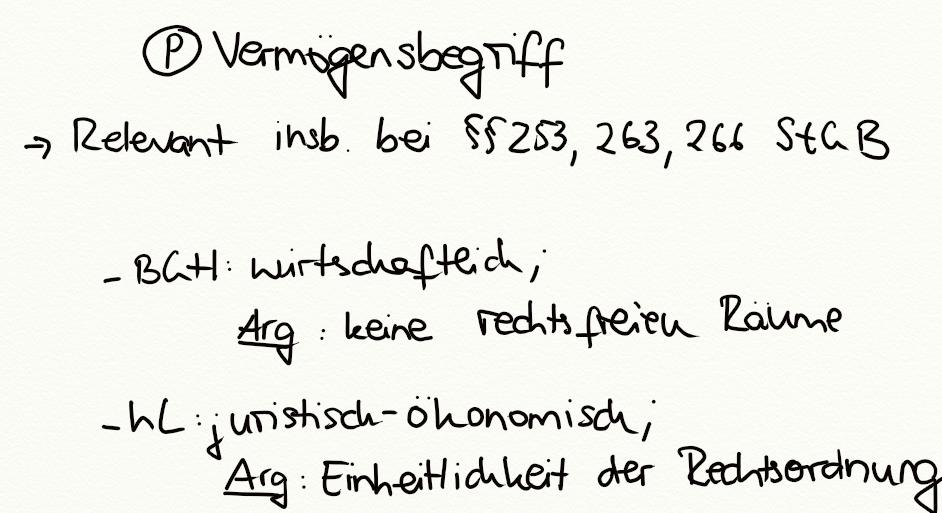 Ⓟ Vermögensbegriff
→ Relevant insb. bei §§ 253, 263, 266 StGB
- BGH: wirtschaftlich;
Arg: keine rechtsfreien Räume
- hL: juristisch-ökonomisch;
Arg: Einheitlichkeit der Rechtsordnung